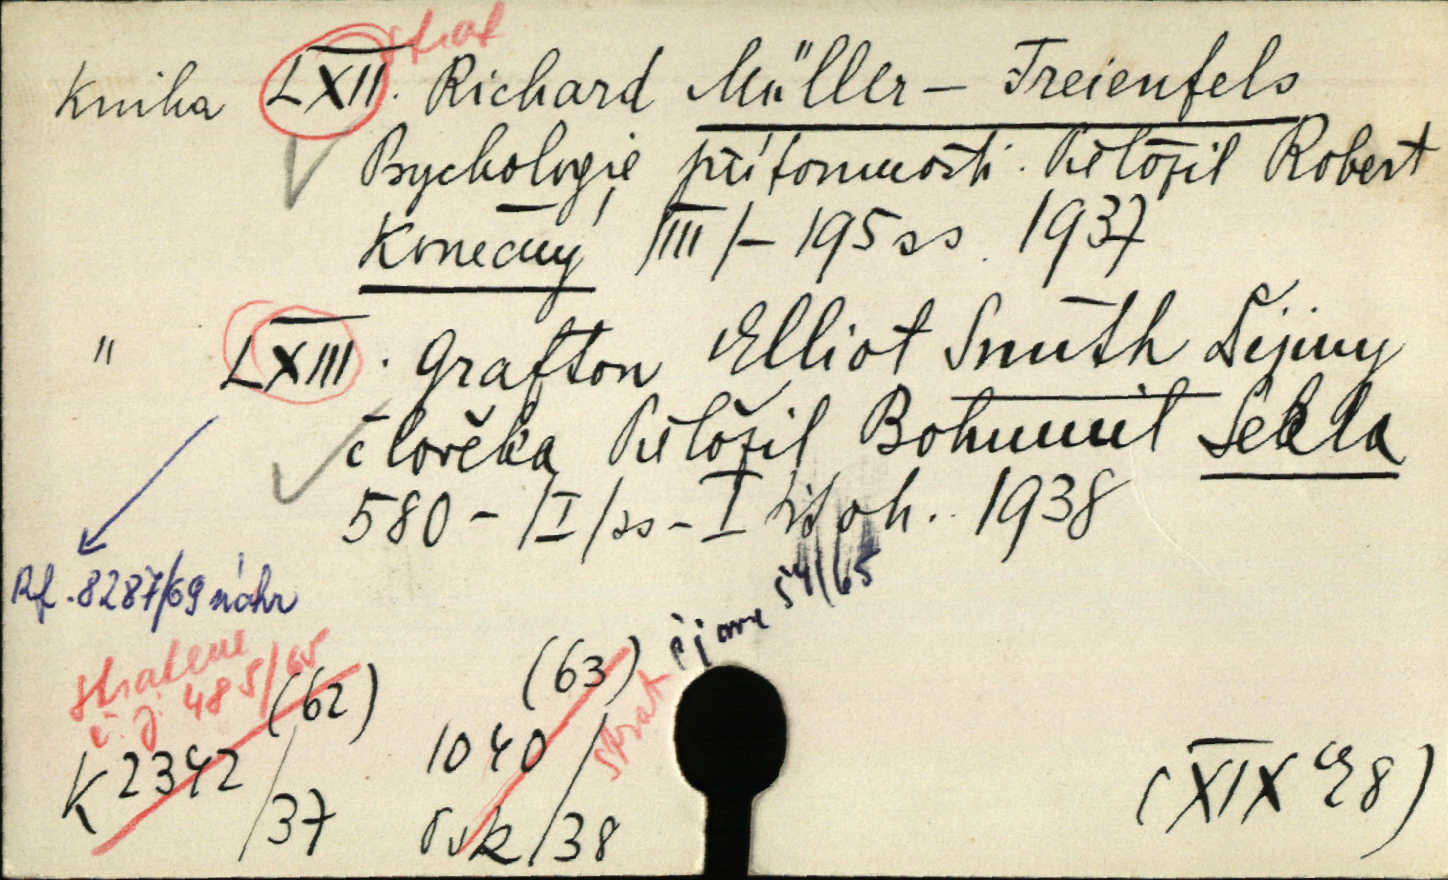 strat
Kniha LXII. Richard Müller – Freienfels
Psychologie přítomnosti. Přeložil Robert
Konečný /III/ – 195 ss. 1937
" LXIII. Grafton Elliot Smith Dějiny
člověka Přeložil Bohumil Sekla
580 – /I/ ss – I 1938
8287/69 náhr
54/65
stratene
č. j. 485/65
(62)
K 2342/37
(63)
strat
1040
/38
(XIX 28)